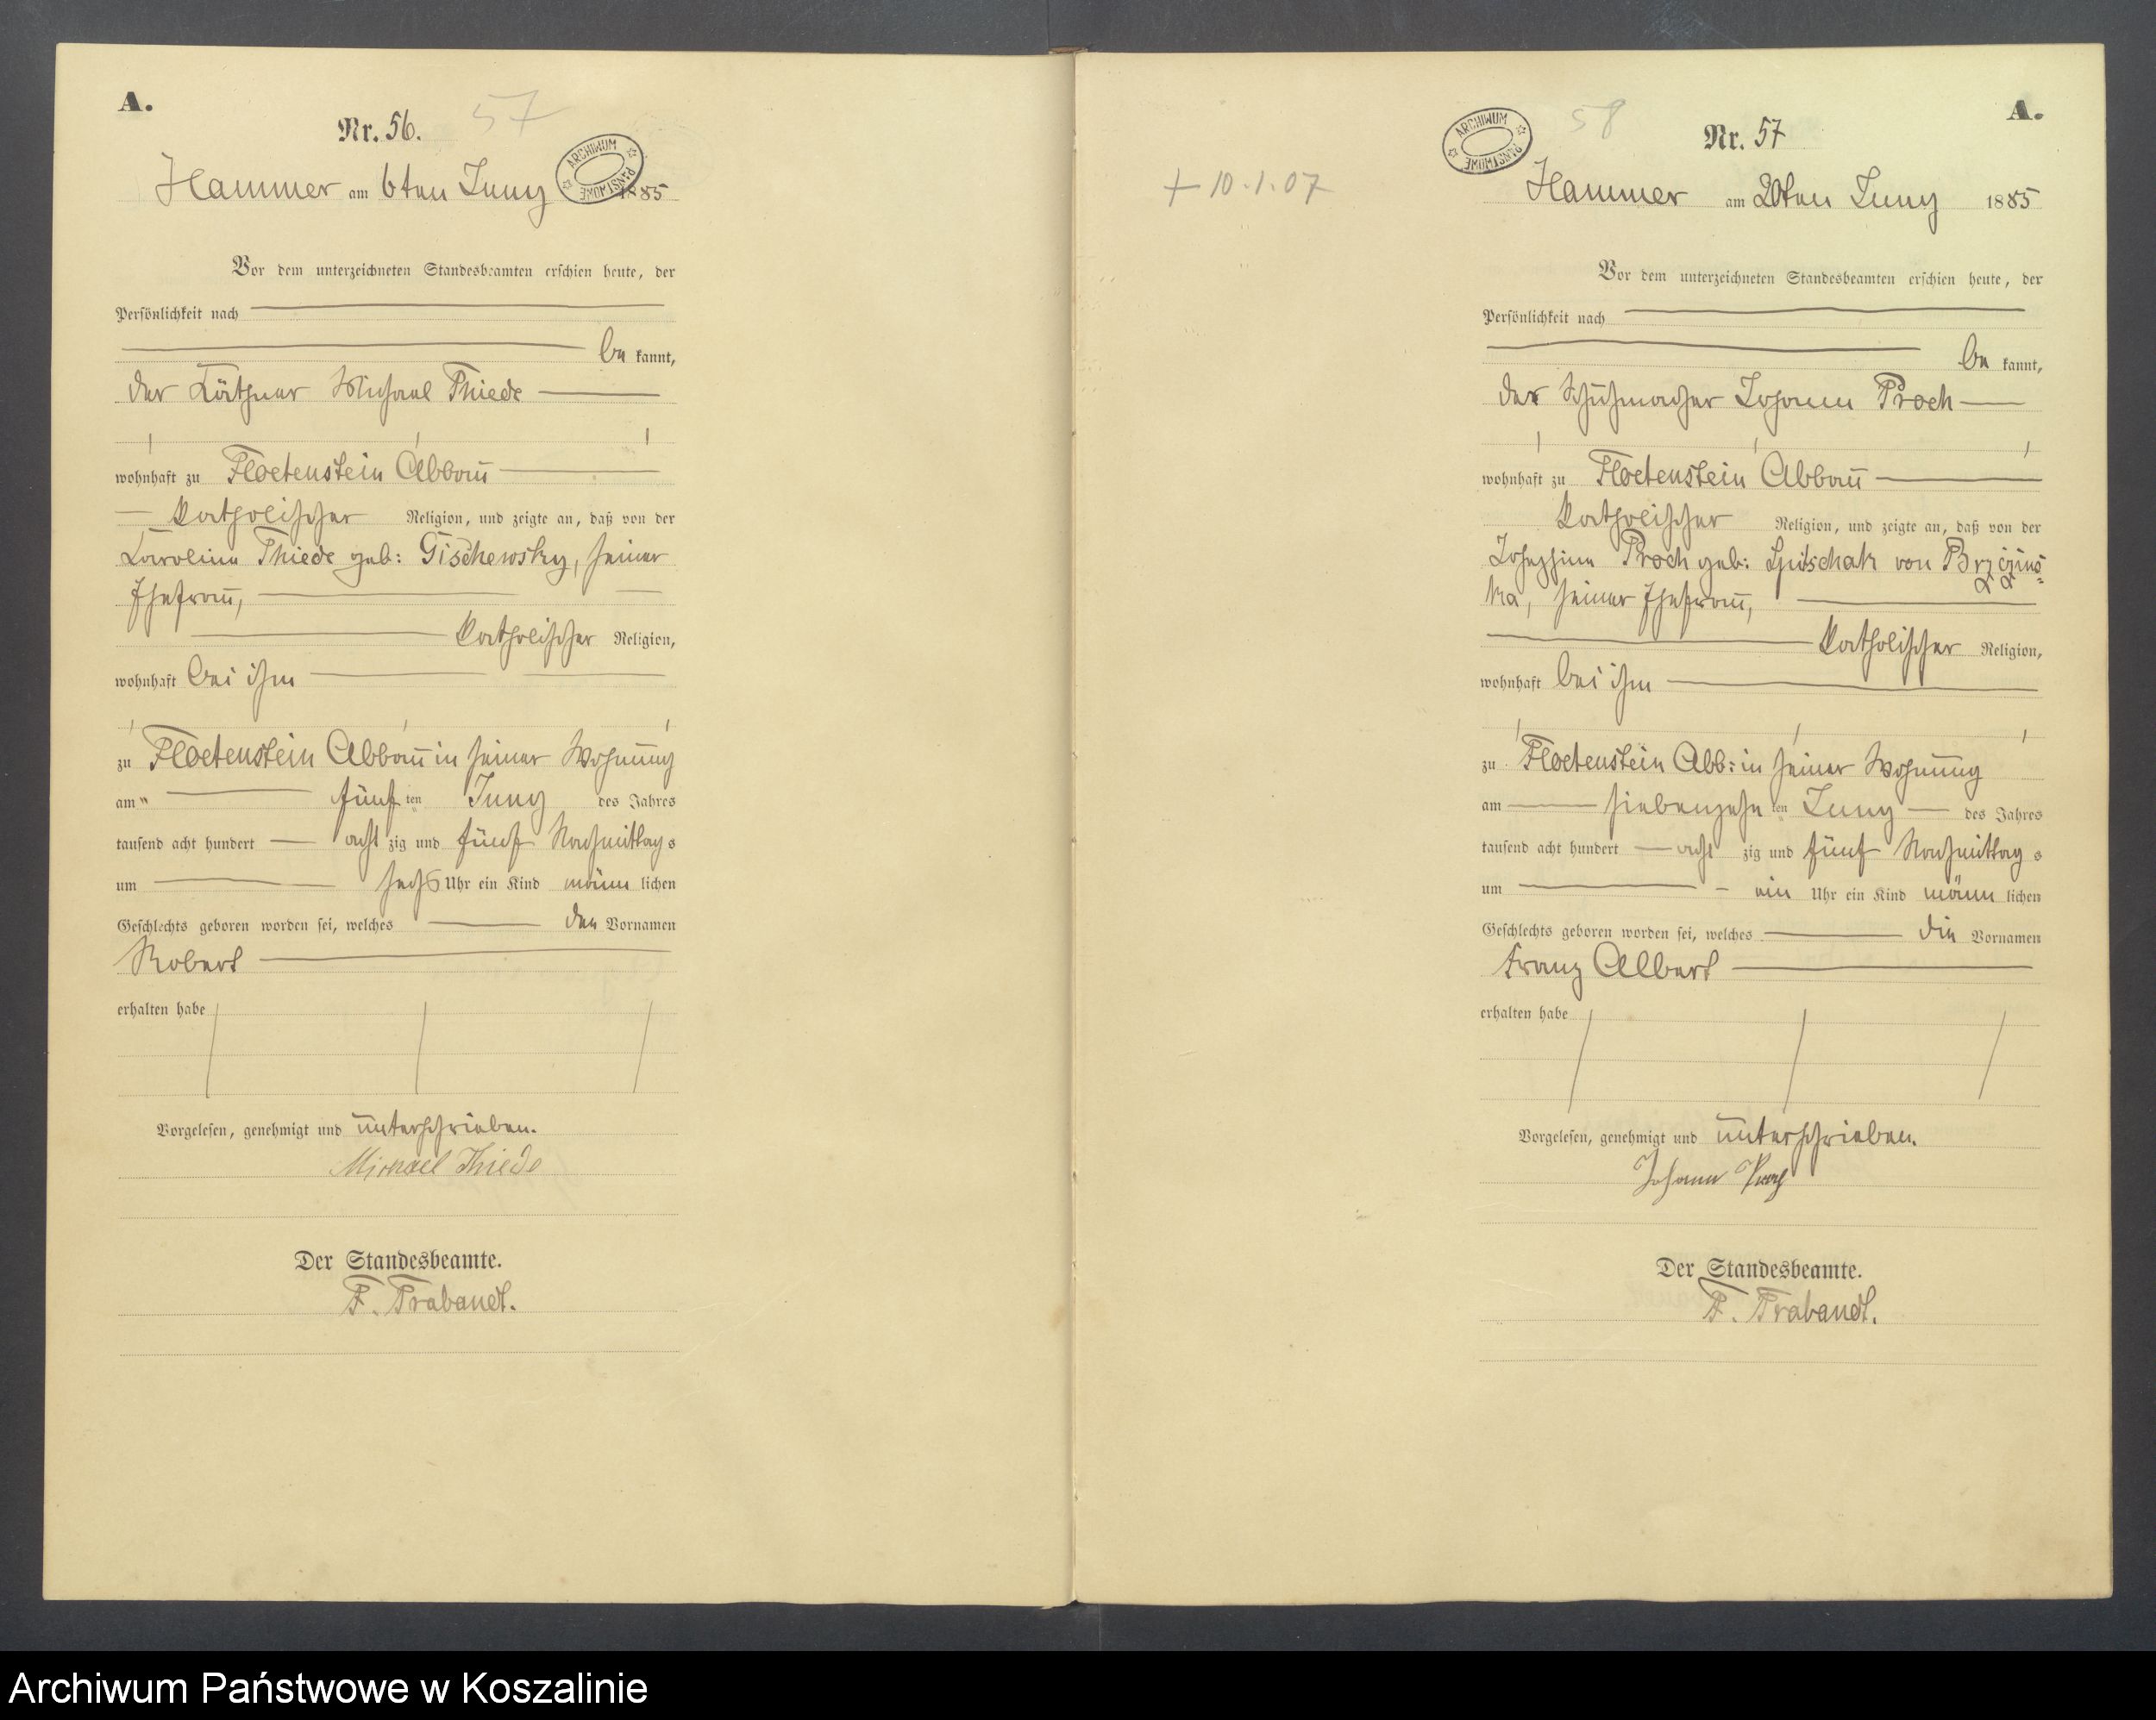 A.
Nr. 56.
57
ARCHIWUM PAŃSTWOWE
Hammer am 6ten Juny 1885
Vor dem unterzeichneten Standesbeamten erschien heute, der
Persönlichkeit nach
be kannt,
der Käthner Michael Thiede
wohnhaft zu Floetenstein Abbau
katholischer Religion, und zeigte an, daß von der
Karoline Thiede geb: Gischewsky, seiner
Ehefrau,
katholischer Religion,
wohnhaft bei ihm
zu Floetenstein Abbau in seiner Wohnung
am fünf ten Juny des Jahres
tausend acht hundert acht zig und fünf Nachmittag s
um sechs Uhr ein Kind männ lichen
Geschlechts geboren worden sei, welches den Vornamen
Robert
erhalten habe
Vorgelesen, genehmigt und unterschrieben.
Michael Thiede
Der Standesbeamte.
F. Trabandt.
A.
ARCHIWUM PAŃSTWOWE
58
Nr. 57
+ 10.1.07
Hammer am 20ten Juny 1885
Vor dem unterzeichneten Standesbeamten erschien heute, der
Persönlichkeit nach
be kannt,
der Schuhmacher Johann Proch
wohnhaft zu Floetenstein Abbau
katholischer Religion, und zeigte an, daß von der
Josephine Proch geb: von
ka, seiner Ehefrau,
katholischer Religion,
wohnhaft bei ihm
zu Floetenstein Abb: in seiner Wohnung
am siebenzehn ten Juny des Jahres
tausend acht hundert acht zig und fünf Nachmittag s
um ein Uhr ein Kind männ lichen
Geschlechts geboren worden sei, welches die Vornamen
Franz Albert
erhalten habe
Vorgelesen, genehmigt und unterschrieben.
Johann Proch
Der Standesbeamte.
F. Trabandt.
Archiwum Państwowe w Koszalinie